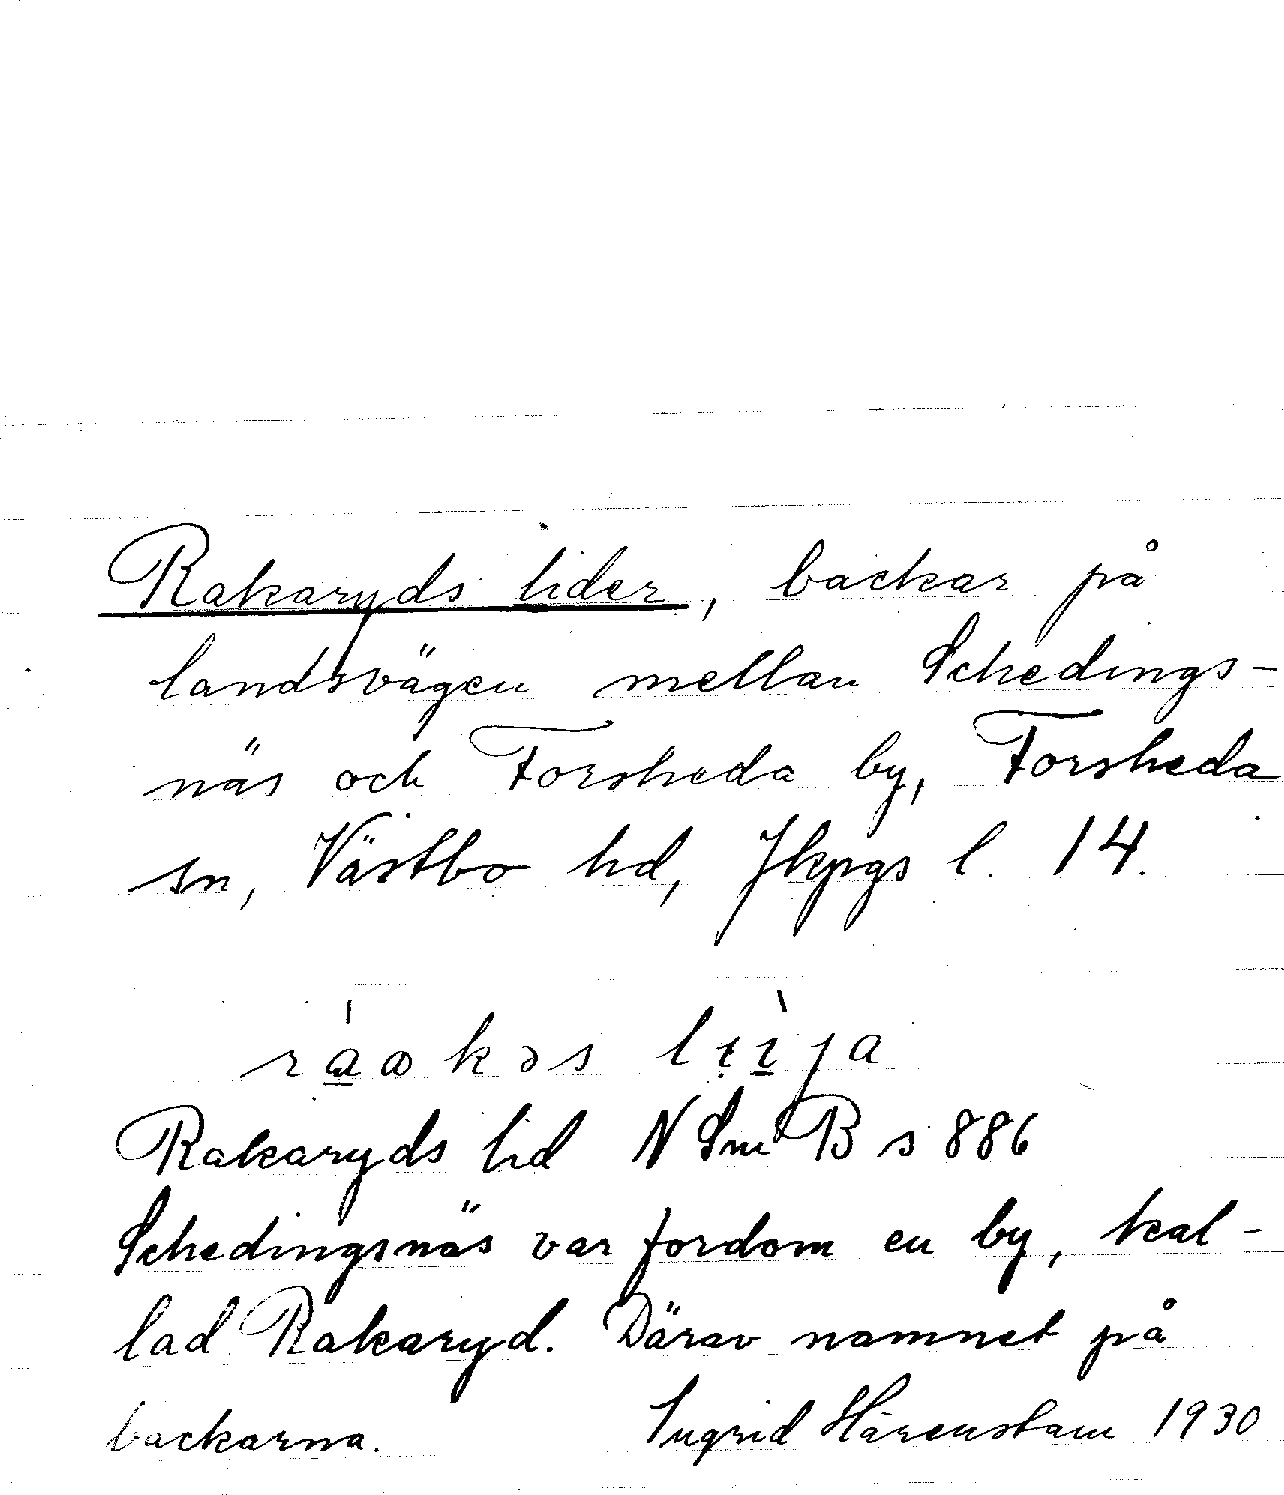 Rakaryds lider, backar på
landsvägen mellan Schedings-
näs och Forsheda by, Forsheda
sn, Västbo hd, Jkpgs l. 14.
ráakəs lìija
Rakaryds lid N Sm B s 886
Schedingsnäs var fordom en by, kal-
lad Rakaryd. Därav namnet på
backarna. Ingrid Härenstam 1930